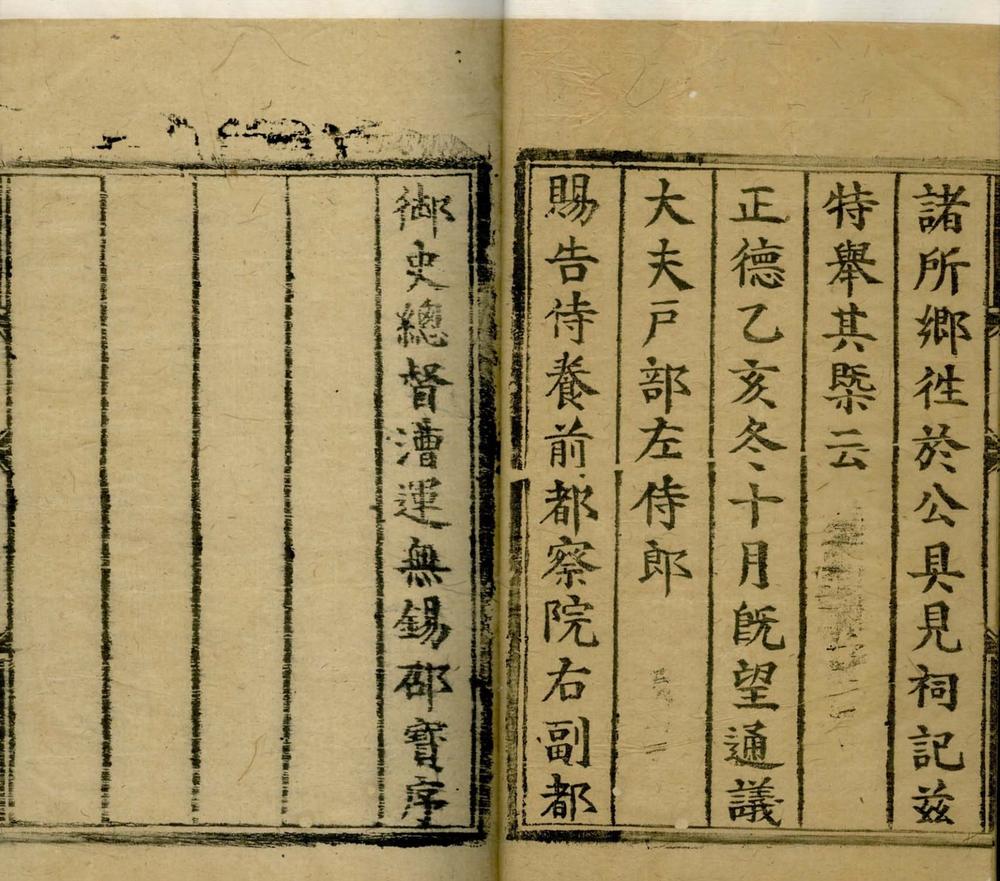 諸所鄉徃於公具見祠記茲
特舉其槩云
正德乙亥冬十月旣望通議
大夫戸部左侍郎
賜告侍養前都察院右副都
御史總督漕運無錫邵寶序